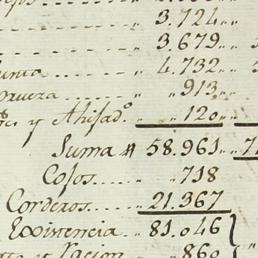 3.724
3.679
4.732
913
y Ahijad.º 120
Suma # 58.961
Cojos 718
Corderos 21.367
Existencia 81.046
860